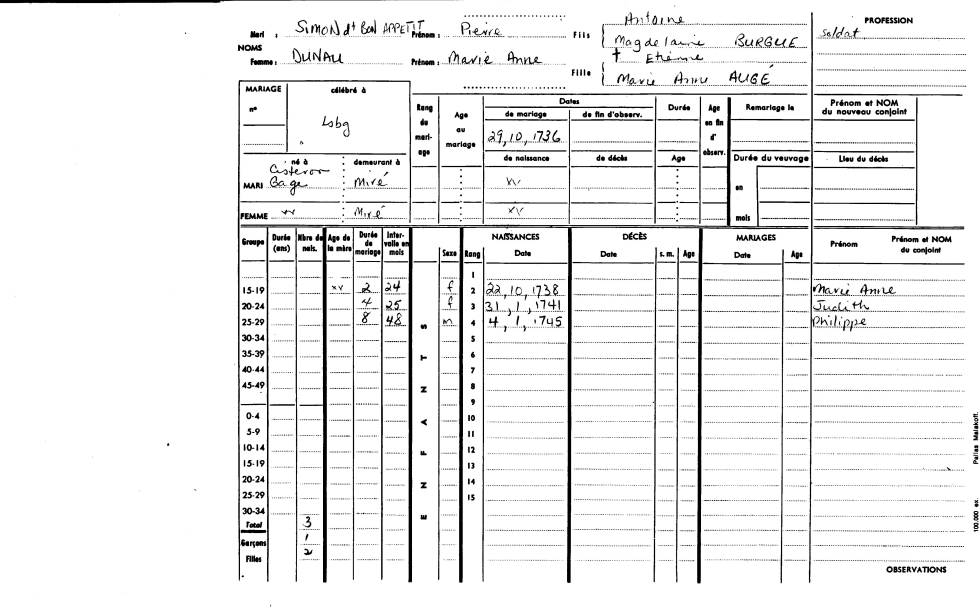 Mari : SIMON dt BON APPETIT Prénom : Pierre Fils Antoine
Magdelaine BURGUE
NOMS
Femme : DUNAU Prénom : Marie Anne Fille † Etienne
Marie Anne AUGÉ
PROFESSION
Soldat
MARIAGE célébré à
n° Lsbg
Rang du mariage Age au mariage Dates Durée Age en fin d'observ. Remariage le Prénom et NOM du nouveau conjoint
de mariage de fin d'observ.
29, 10, 1736
de naissance de décès Age Durée du veuvage Lieu du décès
né à demeurant à
MARI Cisteron Miré
Gage
en
FEMME Miré
mois
Groupe Durée (ans) Nbre de nais. Age de la mère Durée de mariage Intervalle en mois ENFANTS Sexe Rang NAISSANCES Date DÉCÈS Date s. m. Age MARIAGES Date Age Prénom Prénom et NOM du conjoint
1
15-19 xv 2 24 f 2 22, 10, 1738 Marie Anne
20-24 4 25 f 3 31, 1, 1741 Judith
25-29 8 48 m 4 4, 1, 1745 Philippe
30-34 5
35-39 6
40-44 7
45-49 8
9
0-4 10
5-9 11
10-14 12
15-19 13
20-24 14
25-29 15
30-34
Total 3
Garçons 1
Filles 2
OBSERVATIONS
100.000 ex. Pallas Malakoff.